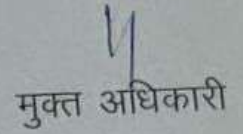 मुक्त अधिकारी